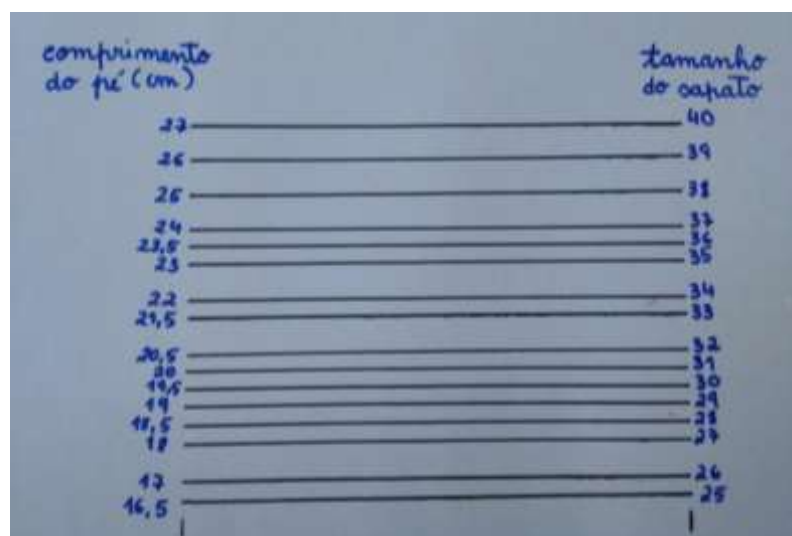 comprimento
do pé (cm)
tamanho
do sapato
27 40
26 39
25 38
24 37
23,5 36
23 35
22 34
21,5 33
20,5 32
20 31
19,5 30
19 29
18,5 28
18 27
17 26
16,5 25